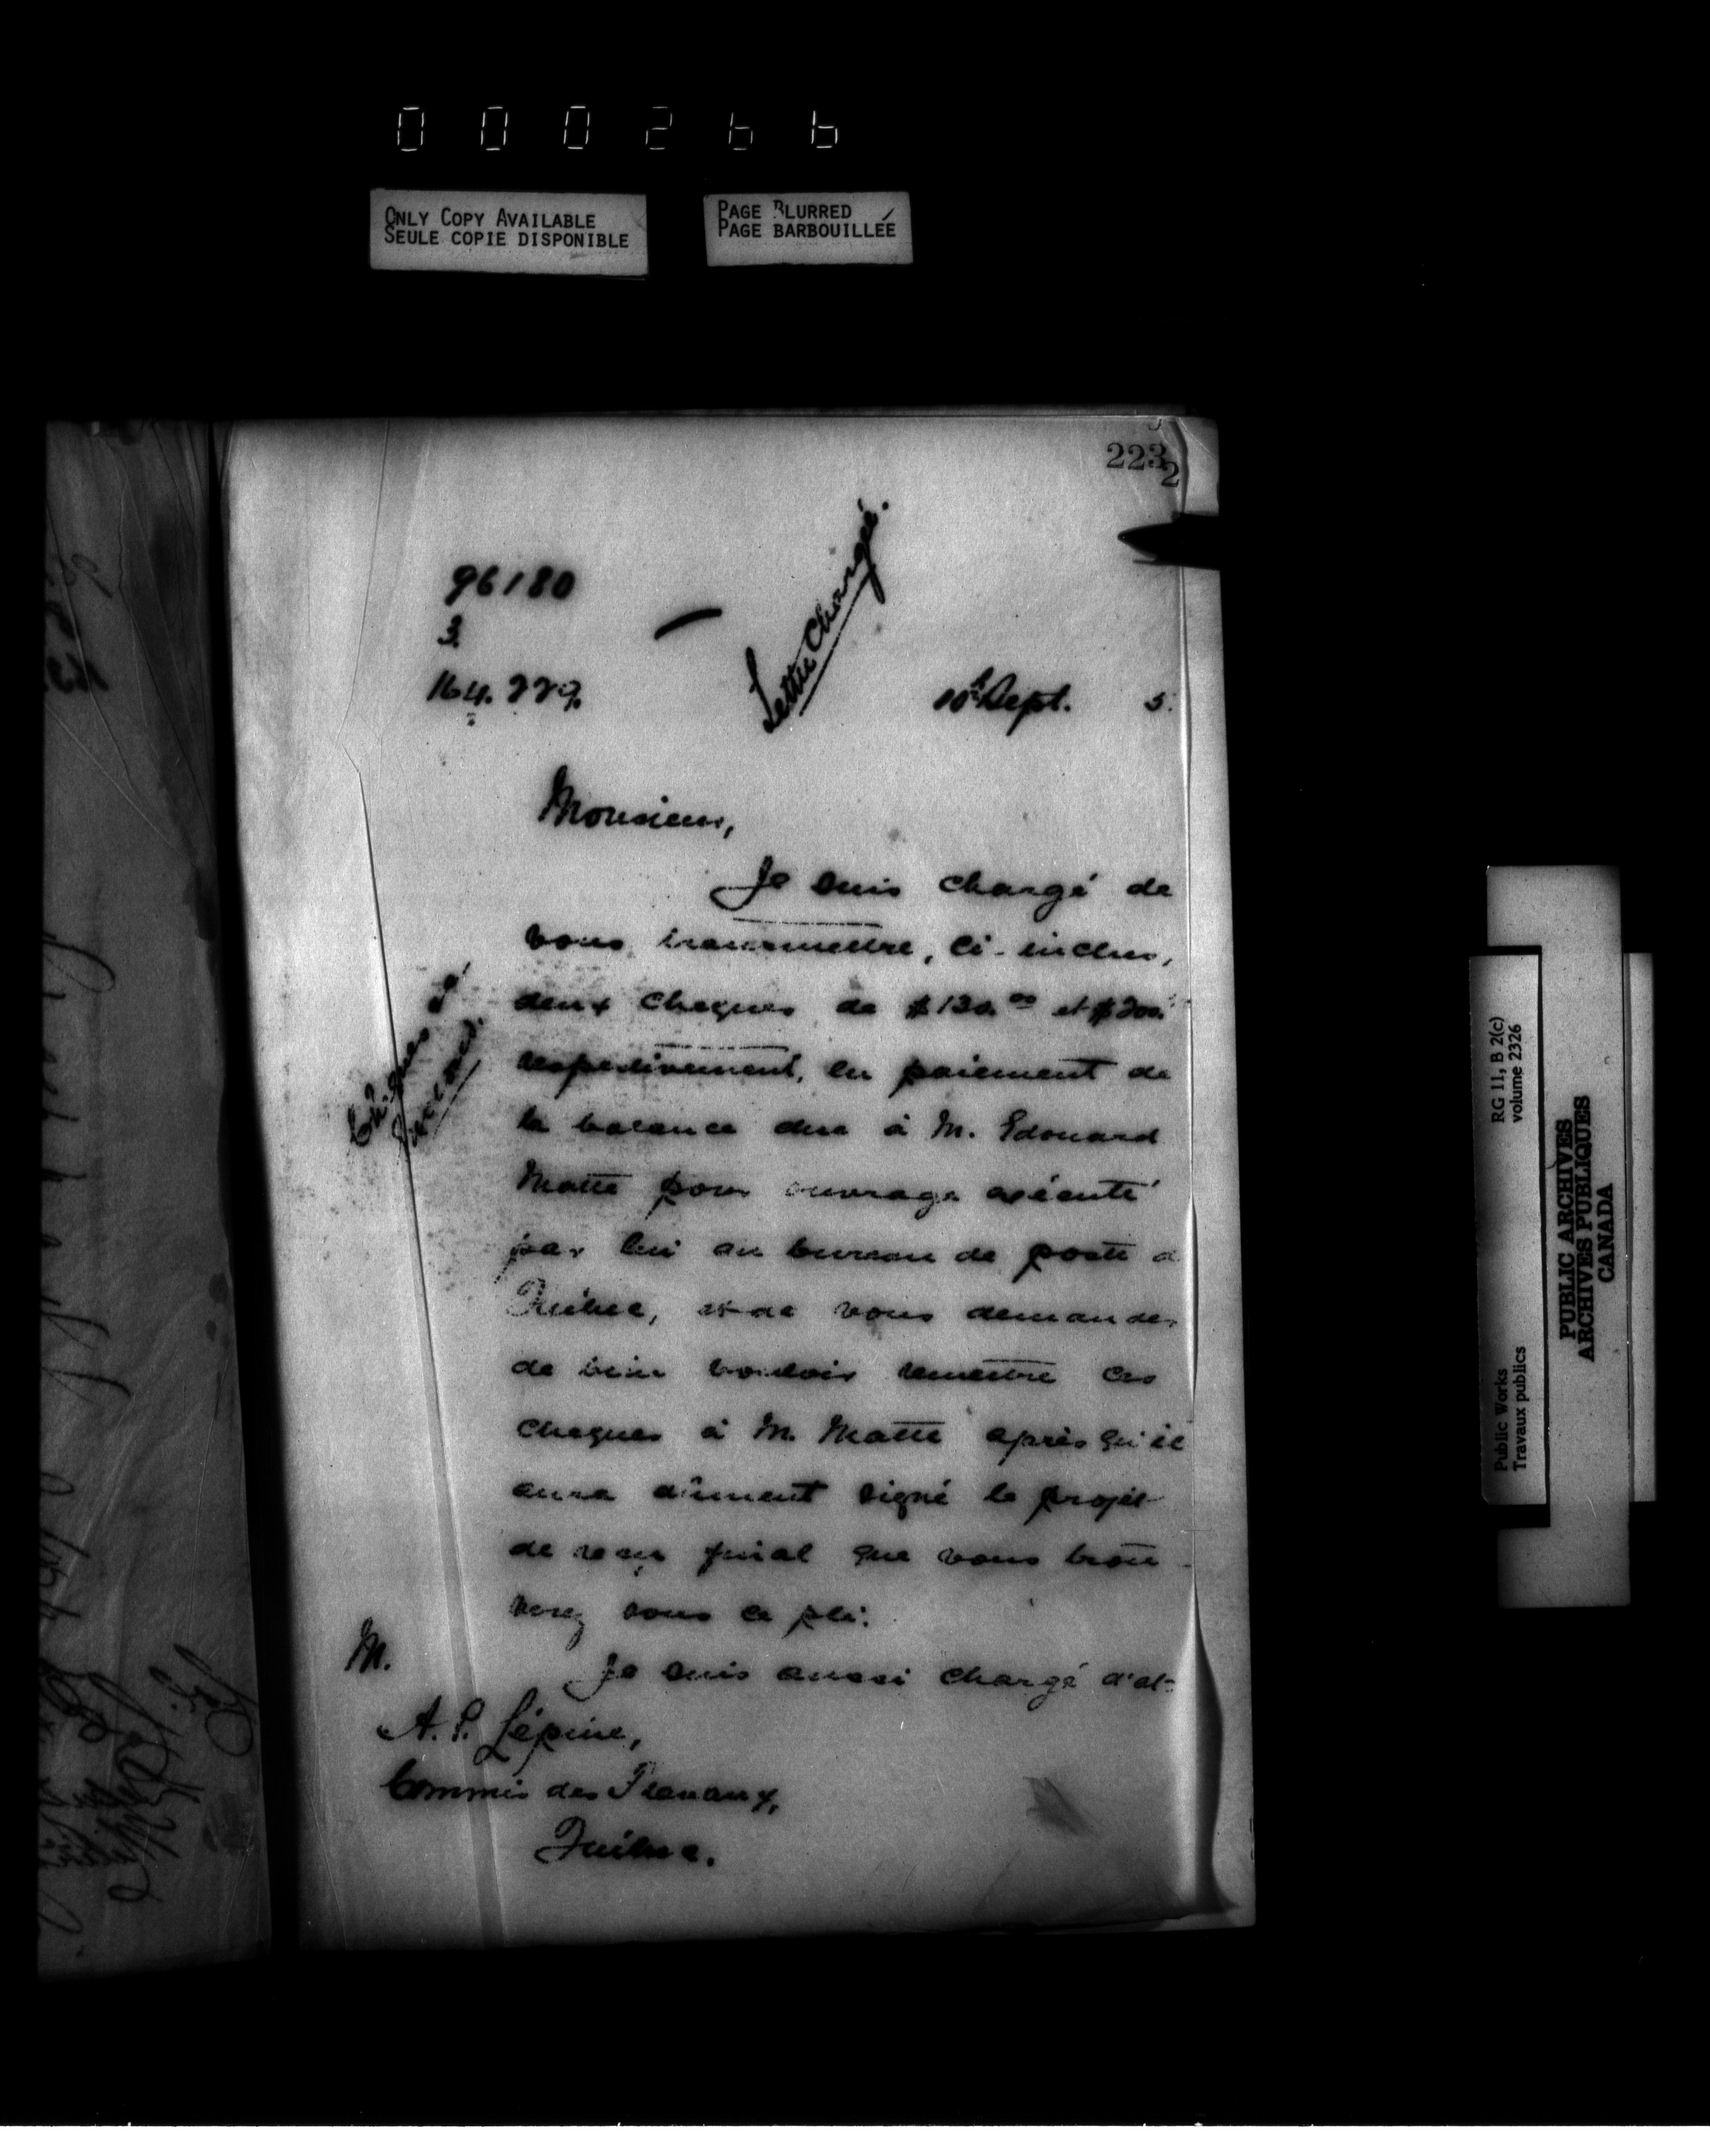 000266
ONLY COPY AVAILABLE
SEULE COPIE DISPONIBLE
PAGE BLURRED
PAGE BARBOUILLÉE
223
2
96180
3
164.229.
Lettre Chargée.
10 Sept. 5.
Monsieur,
Je suis chargé de
vous transmettre, ci-inclus,
deux cheques de $130.00 et $200.
respectivement, en paiement de
la balance due à M. Edouard
Matte pour ouvrage exécuté
par lui au bureau de poste d
Québec, et de vous demander
de bien vouloir remettre ces
cheques à M. Matte après qu'il
aura dûment signé le projet
de reçu final que vous trou-
verez sous ce pli.
Je suis aussi chargé d'at-
Chèques
M.
A. P. Lépine,
Commis des Travaux,
Québec.
RG 11, B 2(c)
volume 2326
Public Works
Travaux publics
PUBLIC ARCHIVES
ARCHIVES PUBLIQUES
CANADA